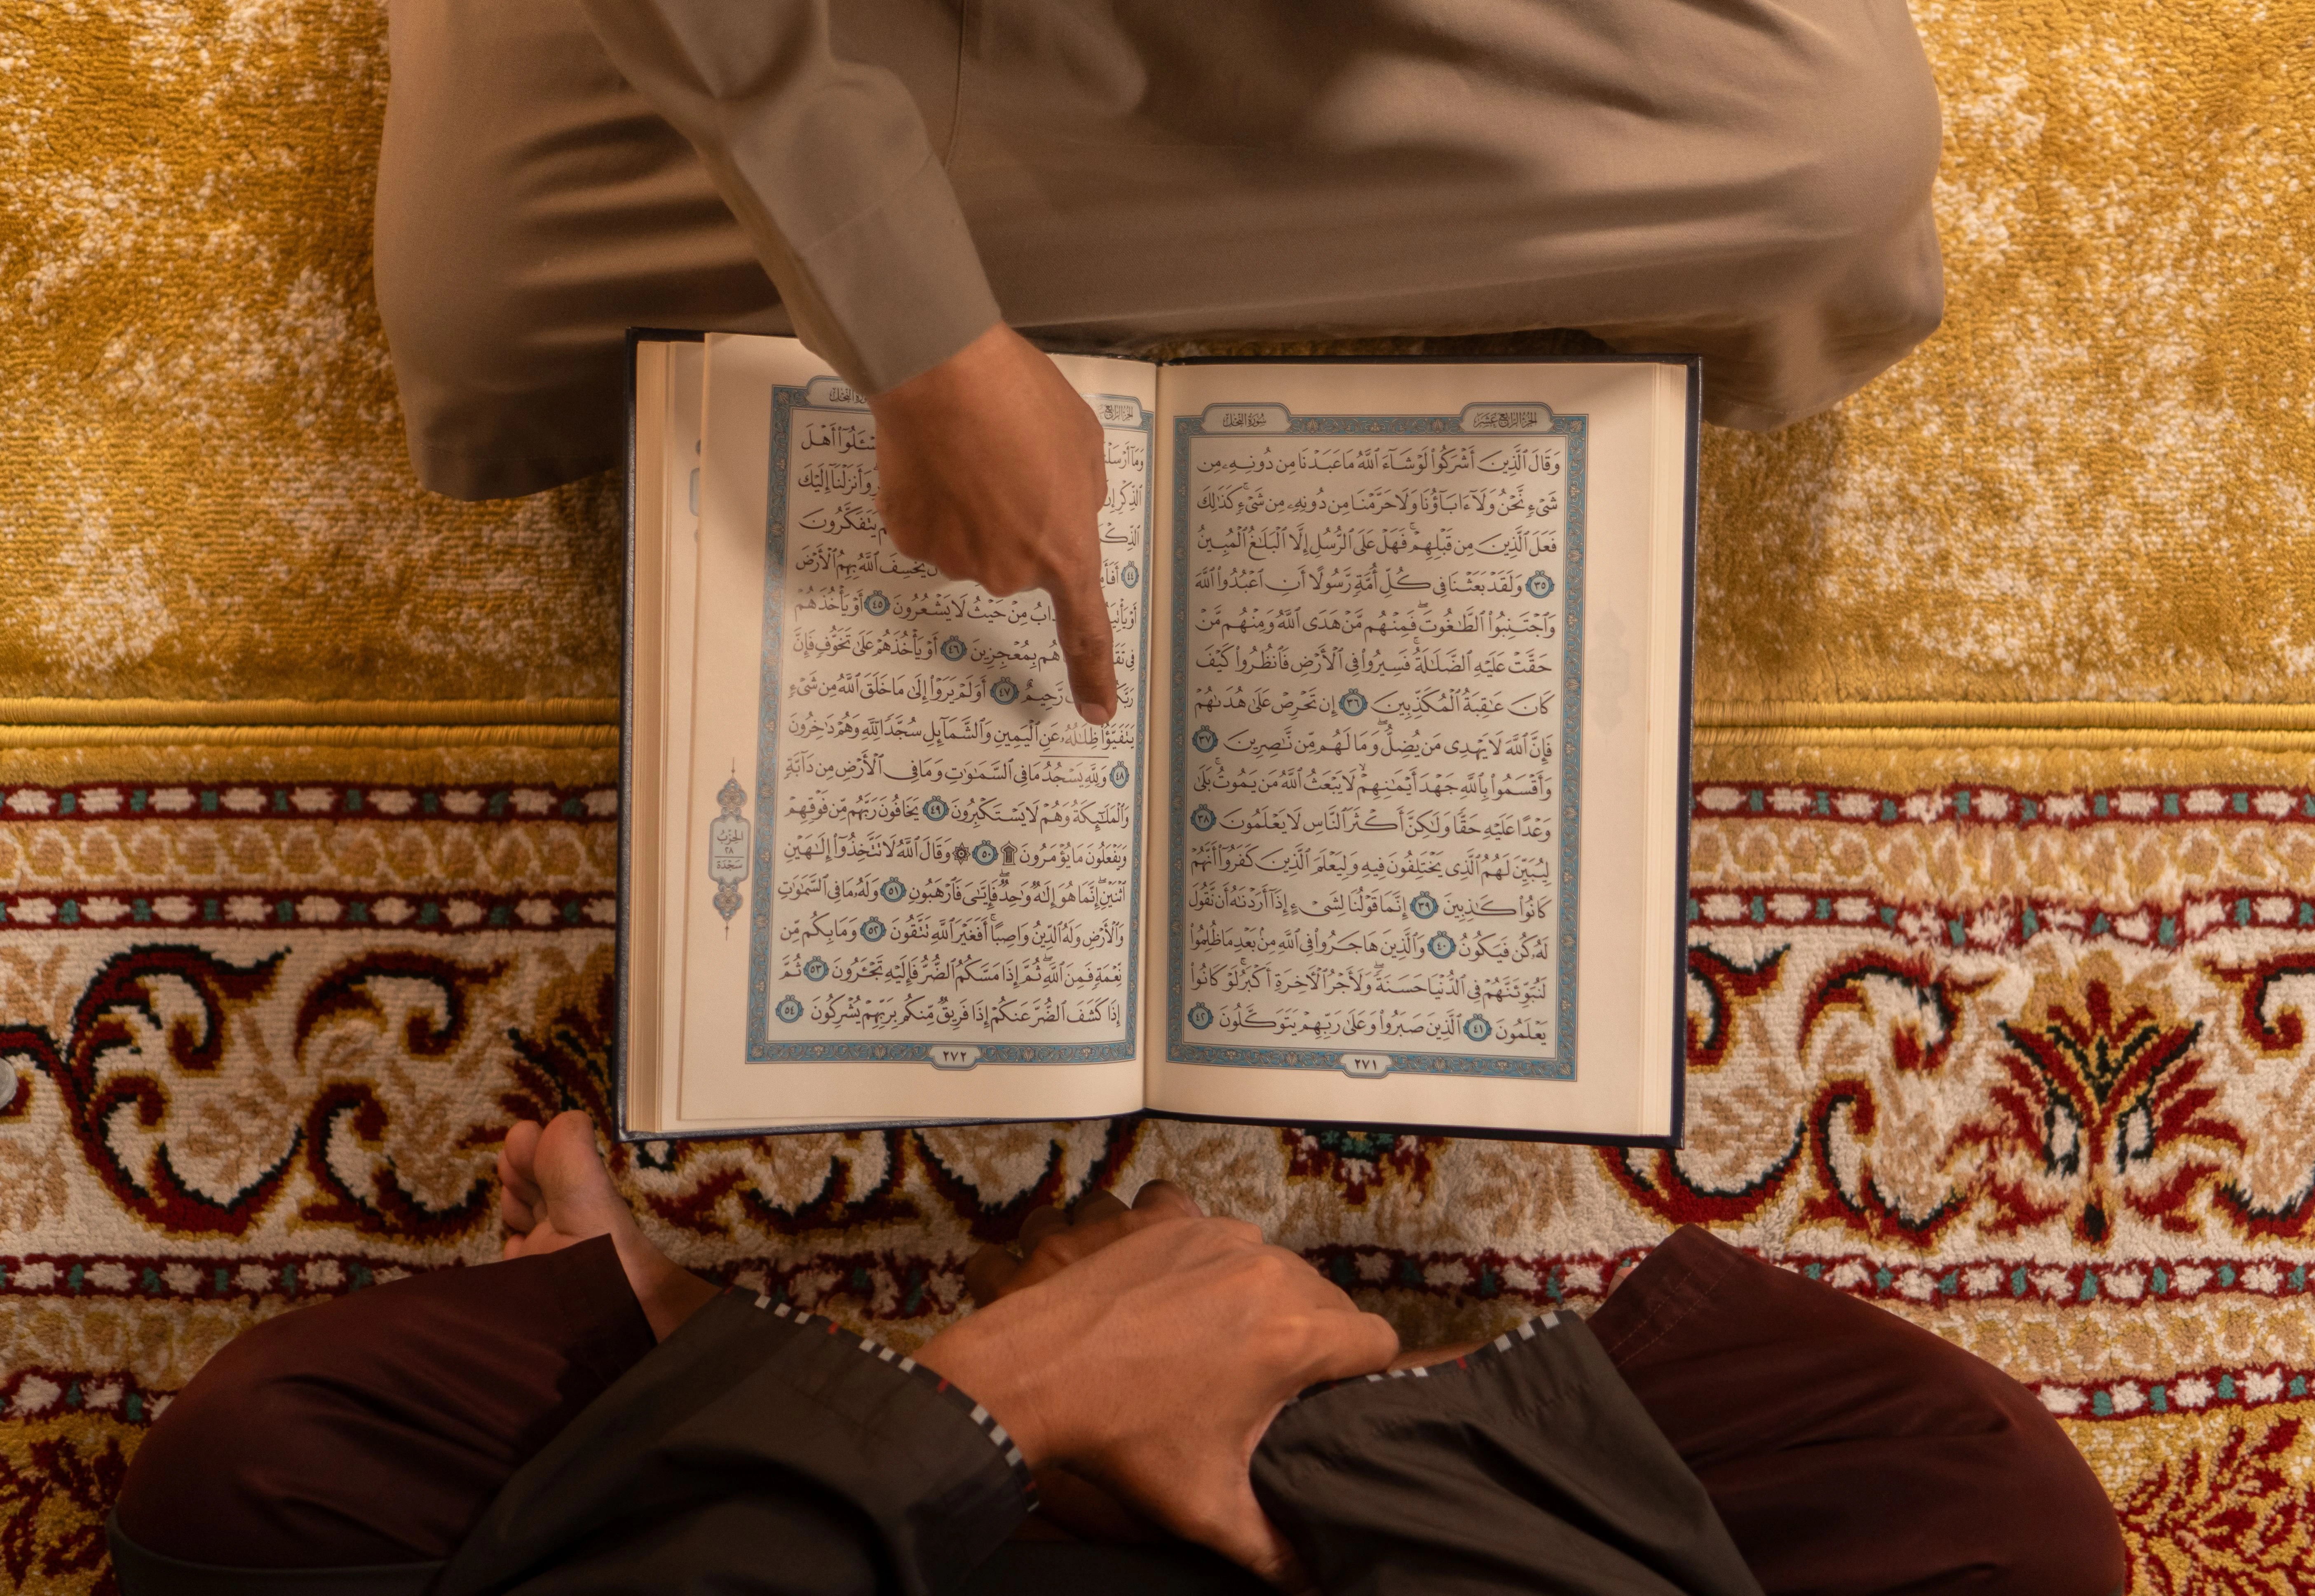 الجزء الرابع عشر
سورة النحل
وَقَالَ ٱلَّذِينَ أَشْرَكُوا۟ لَوْ شَآءَ ٱللَّهُ مَا عَبَدْنَا مِن دُونِهِۦ مِن
شَىْءٍ نَّحْنُ وَلَآ ءَابَآؤُنَا وَلَا حَرَّمْنَا مِن دُونِهِۦ مِن شَىْءٍ ۚ كَذَٰلِكَ
فَعَلَ ٱلَّذِينَ مِن قَبْلِهِمْ ۚ فَهَلْ عَلَى ٱلرُّسُلِ إِلَّا ٱلْبَلَٰغُ ٱلْمُبِينُ
٣٥ وَلَقَدْ بَعَثْنَا فِى كُلِّ أُمَّةٍ رَّسُولًا أَنِ ٱعْبُدُوا۟ ٱللَّهَ
وَٱجْتَنِبُوا۟ ٱلطَّٰغُوتَ ۖ فَمِنْهُم مَّنْ هَدَى ٱللَّهُ وَمِنْهُم مَّنْ
حَقَّتْ عَلَيْهِ ٱلضَّلَٰلَةُ ۚ فَسِيرُوا۟ فِى ٱلْأَرْضِ فَٱنظُرُوا۟ كَيْفَ
كَانَ عَٰقِبَةُ ٱلْمُكَذِّبِينَ ٣٦ إِن تَحْرِصْ عَلَىٰ هُدَىٰهُمْ
فَإِنَّ ٱللَّهَ لَا يَهْدِى مَن يُضِلُّ ۖ وَمَا لَهُم مِّن نَّٰصِرِينَ ٣٧
وَأَقْسَمُوا۟ بِٱللَّهِ جَهْدَ أَيْمَٰنِهِمْ ۙ لَا يَبْعَثُ ٱللَّهُ مَن يَمُوتُ ۚ بَلَىٰ
وَعْدًا عَلَيْهِ حَقًّا وَلَٰكِنَّ أَكْثَرَ ٱلنَّاسِ لَا يَعْلَمُونَ ٣٨
لِيُبَيِّنَ لَهُمُ ٱلَّذِى يَخْتَلِفُونَ فِيهِ وَلِيَعْلَمَ ٱلَّذِينَ كَفَرُوٓا۟ أَنَّهُمْ
كَانُوا۟ كَٰذِبِينَ ٣٩ إِنَّمَا قَوْلُنَا لِشَىْءٍ إِذَآ أَرَدْنَٰهُ أَن نَّقُولَ
لَهُۥ كُن فَيَكُونُ ٤٠ وَٱلَّذِينَ هَاجَرُوا۟ فِى ٱللَّهِ مِنۢ بَعْدِ مَا ظُلِمُوا۟
لَنُبَوِّئَنَّهُمْ فِى ٱلدُّنْيَا حَسَنَةً ۖ وَلَأَجْرُ ٱلْءَاخِرَةِ أَكْبَرُ ۚ لَوْ كَانُوا۟
يَعْلَمُونَ ٤١ ٱلَّذِينَ صَبَرُوا۟ وَعَلَىٰ رَبِّهِمْ يَتَوَكَّلُونَ ٤٢
٢٧١
النحل
وَمَآ فَسْـَٔلُوٓا۟ أَهْلَ
ٱلذِّكْرِ وَأَنزَلْنَآ إِلَيْكَ
يَتَفَكَّرُونَ
٤٤ يَخْسِفَ ٱللَّهُ بِهِمُ ٱلْأَرْضَ
مِنْ حَيْثُ لَا يَشْعُرُونَ ٤٥ أَوْ يَأْخُذَهُمْ
فِى هُم بِمُعْجِزِينَ ٤٦ أَوْ يَأْخُذَهُمْ عَلَىٰ تَخَوُّفٍ فَإِنَّ
رَّحِيمٌ ٤٧ أَوَلَمْ يَرَوْا۟ إِلَىٰ مَا خَلَقَ ٱللَّهُ مِن شَىْءٍ
يَتَفَيَّؤُا۟ ظِلَٰلُهُۥ عَنِ ٱلْيَمِينِ وَٱلشَّمَآئِلِ سُجَّدًا لِّلَّهِ وَهُمْ دَٰخِرُونَ
٤٨ وَلِلَّهِ يَسْجُدُ مَا فِى ٱلسَّمَٰوَٰتِ وَمَا فِى ٱلْأَرْضِ مِن دَآبَّةٍ
وَٱلْمَلَٰٓئِكَةُ وَهُمْ لَا يَسْتَكْبِرُونَ ٤٩ يَخَافُونَ رَبَّهُم مِّن فَوْقِهِمْ
وَيَفْعَلُونَ مَا يُؤْمَرُونَ ۩ ٥٠ ۞ وَقَالَ ٱللَّهُ لَا تَتَّخِذُوٓا۟ إِلَٰهَيْنِ
ٱثْنَيْنِ ۖ إِنَّمَا هُوَ إِلَٰهٌ وَٰحِدٌ ۖ فَإِيَّٰىَ فَٱرْهَبُونِ ٥١ وَلَهُۥ مَا فِى ٱلسَّمَٰوَٰتِ
وَٱلْأَرْضِ وَلَهُ ٱلدِّينُ وَاصِبًا ۚ أَفَغَيْرَ ٱللَّهِ تَتَّقُونَ ٥٢ وَمَا بِكُم مِّن
نِّعْمَةٍ فَمِنَ ٱللَّهِ ۖ ثُمَّ إِذَا مَسَّكُمُ ٱلضُّرُّ فَإِلَيْهِ تَجْـَٔرُونَ ٥٣ ثُمَّ
إِذَا كَشَفَ ٱلضُّرَّ عَنكُمْ إِذَا فَرِيقٌ مِّنكُم بِرَبِّهِمْ يُشْرِكُونَ ٥٤
٢٧٢
الحزب
٢٨
سجدة